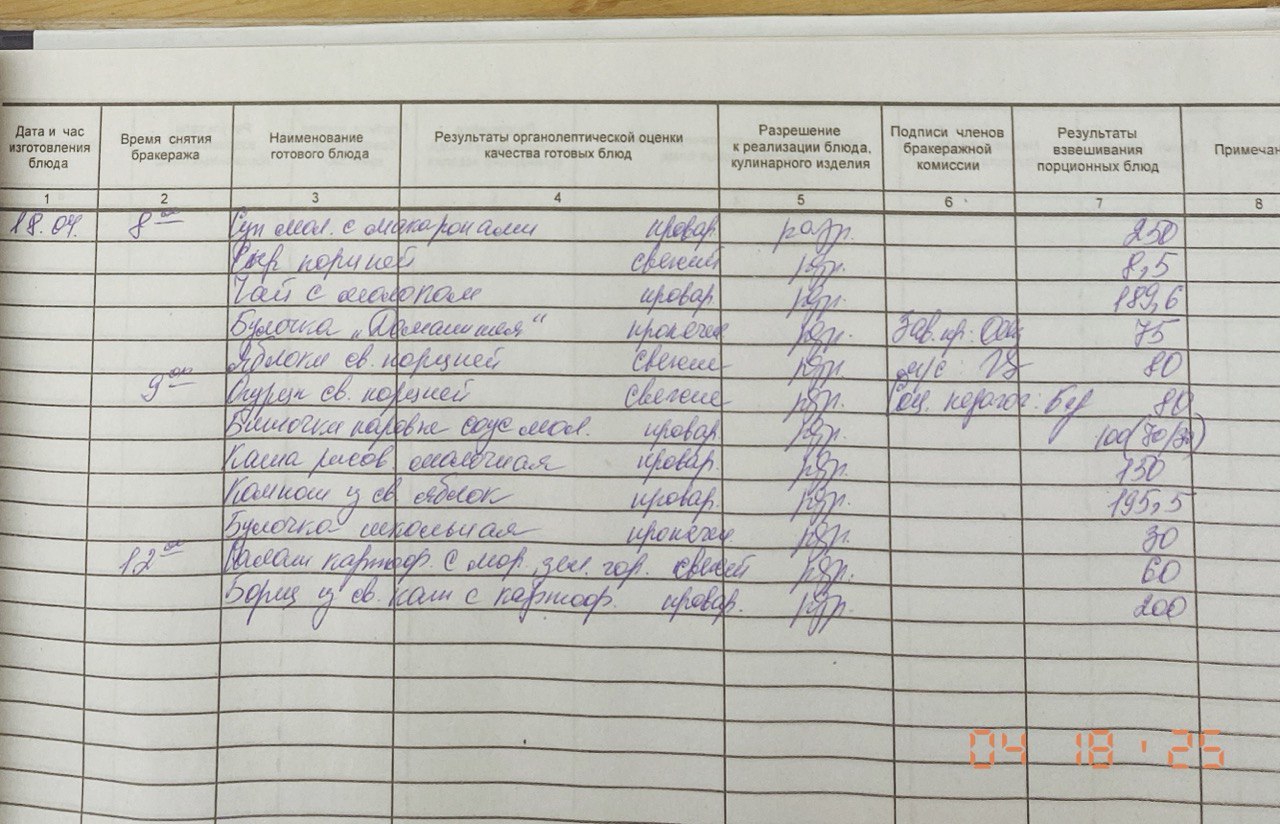 Дата и час изготовления блюда
Время снятия бракеража
Наименование готового блюда
Результаты органолептической оценки качества готовых блюд
Разрешение к реализации блюда, кулинарного изделия
Подписи членов бракеражной комиссии
Результаты взвешивания порционных блюд
Примечан
1 2 3 4 5 6 7 8
18.04. 8 00 Суп мол. с макаронами провар. разр. 250
Сыр порцией свежий рзр. 8,5
Чай с молоком провар. рзр. 189,6
Булочка „Домашняя“ пропечен рзр. Зав. пр: 75
Яблоки св. порцией свежие рзр. м/с: 80
9 00 Огурцы св. порцией свежие рзр. Соц. педагог: 80
Биточки паровые соус мол. провар. рзр. 100(70/30)
Каша рисов. молочная провар. рзр. 150
Компот из св. яблок провар. рзр. 195,5
Булочка школьная пропечен. рзр. 30
12 00 Салат картоф. с мор., зел. гор. свежий рзр. 60
Борщ из св. кап с картоф. провар. рзр. 200
04 18 ' 25